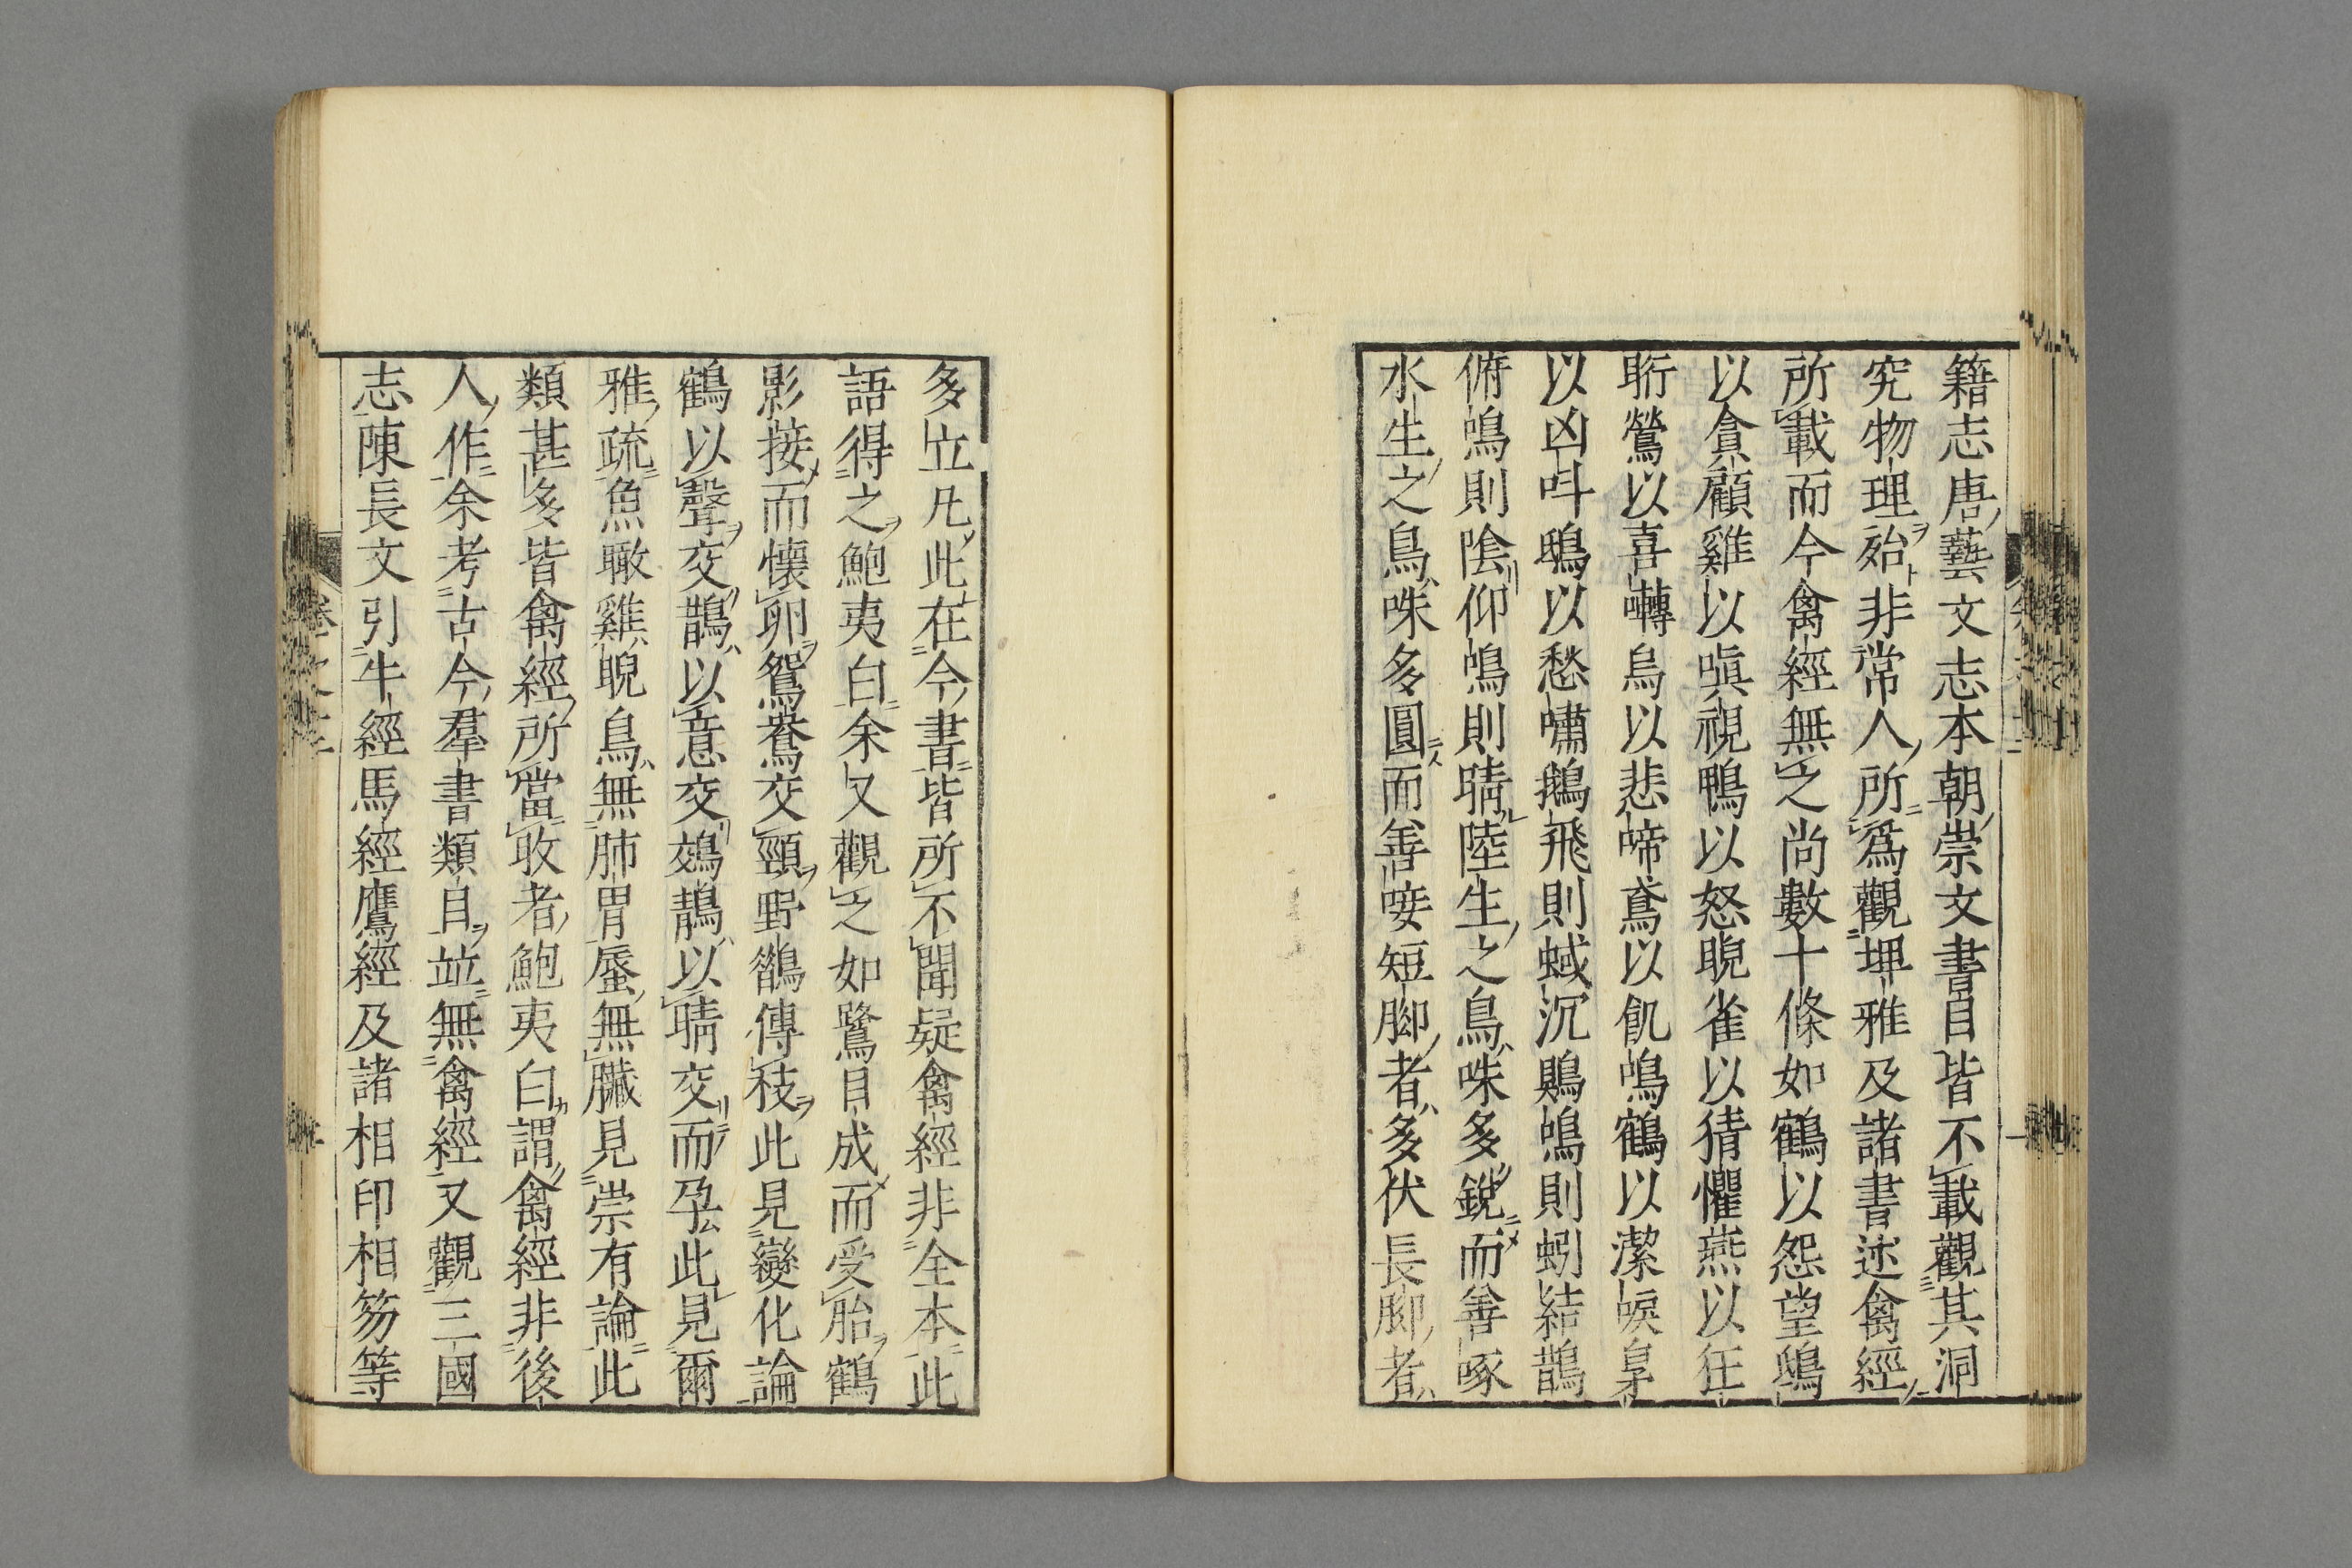 籍志唐藝文志本朝崇文書目皆不載觀其洞
究物理殆非常人所爲觀埤雅及諸書述禽經
所載而今禽經無之尚數十條如鶴以怨望鴟
以貪顧雞以嗔視鴨以怒睨雀以猜懼燕以狂
䀪鶯以喜囀烏以悲啼鳶以飢鳴鶴以潔唳梟
以凶叫鴟以愁嘯鵝飛則蜮沉鵙鳴則蚓結鵲
俯鳴則陰仰鳴則晴陸生之鳥咮多銳而善啄
水生之鳥咮多圓而善唼短脚者多伏長脚者
多立凡此在今書皆所不聞疑禽經非全本此
語得之鮑夷白余又觀之如鷺目成而受胎鶴
影接而懷卵鴛鴦交頸野鵲傳枝此見變化論
鶴以聲交鵲以意交鵁鶄以睛交而孕此見爾
雅疏魚瞰雞睨鳥無肺胃蜃無臟見崇有論此
類甚多皆禽經所當收者鮑夷白謂禽經非後
人作余考古今羣書類目並無禽經又觀三國
志陳長文引牛經馬經鷹經及諸相印相笏等